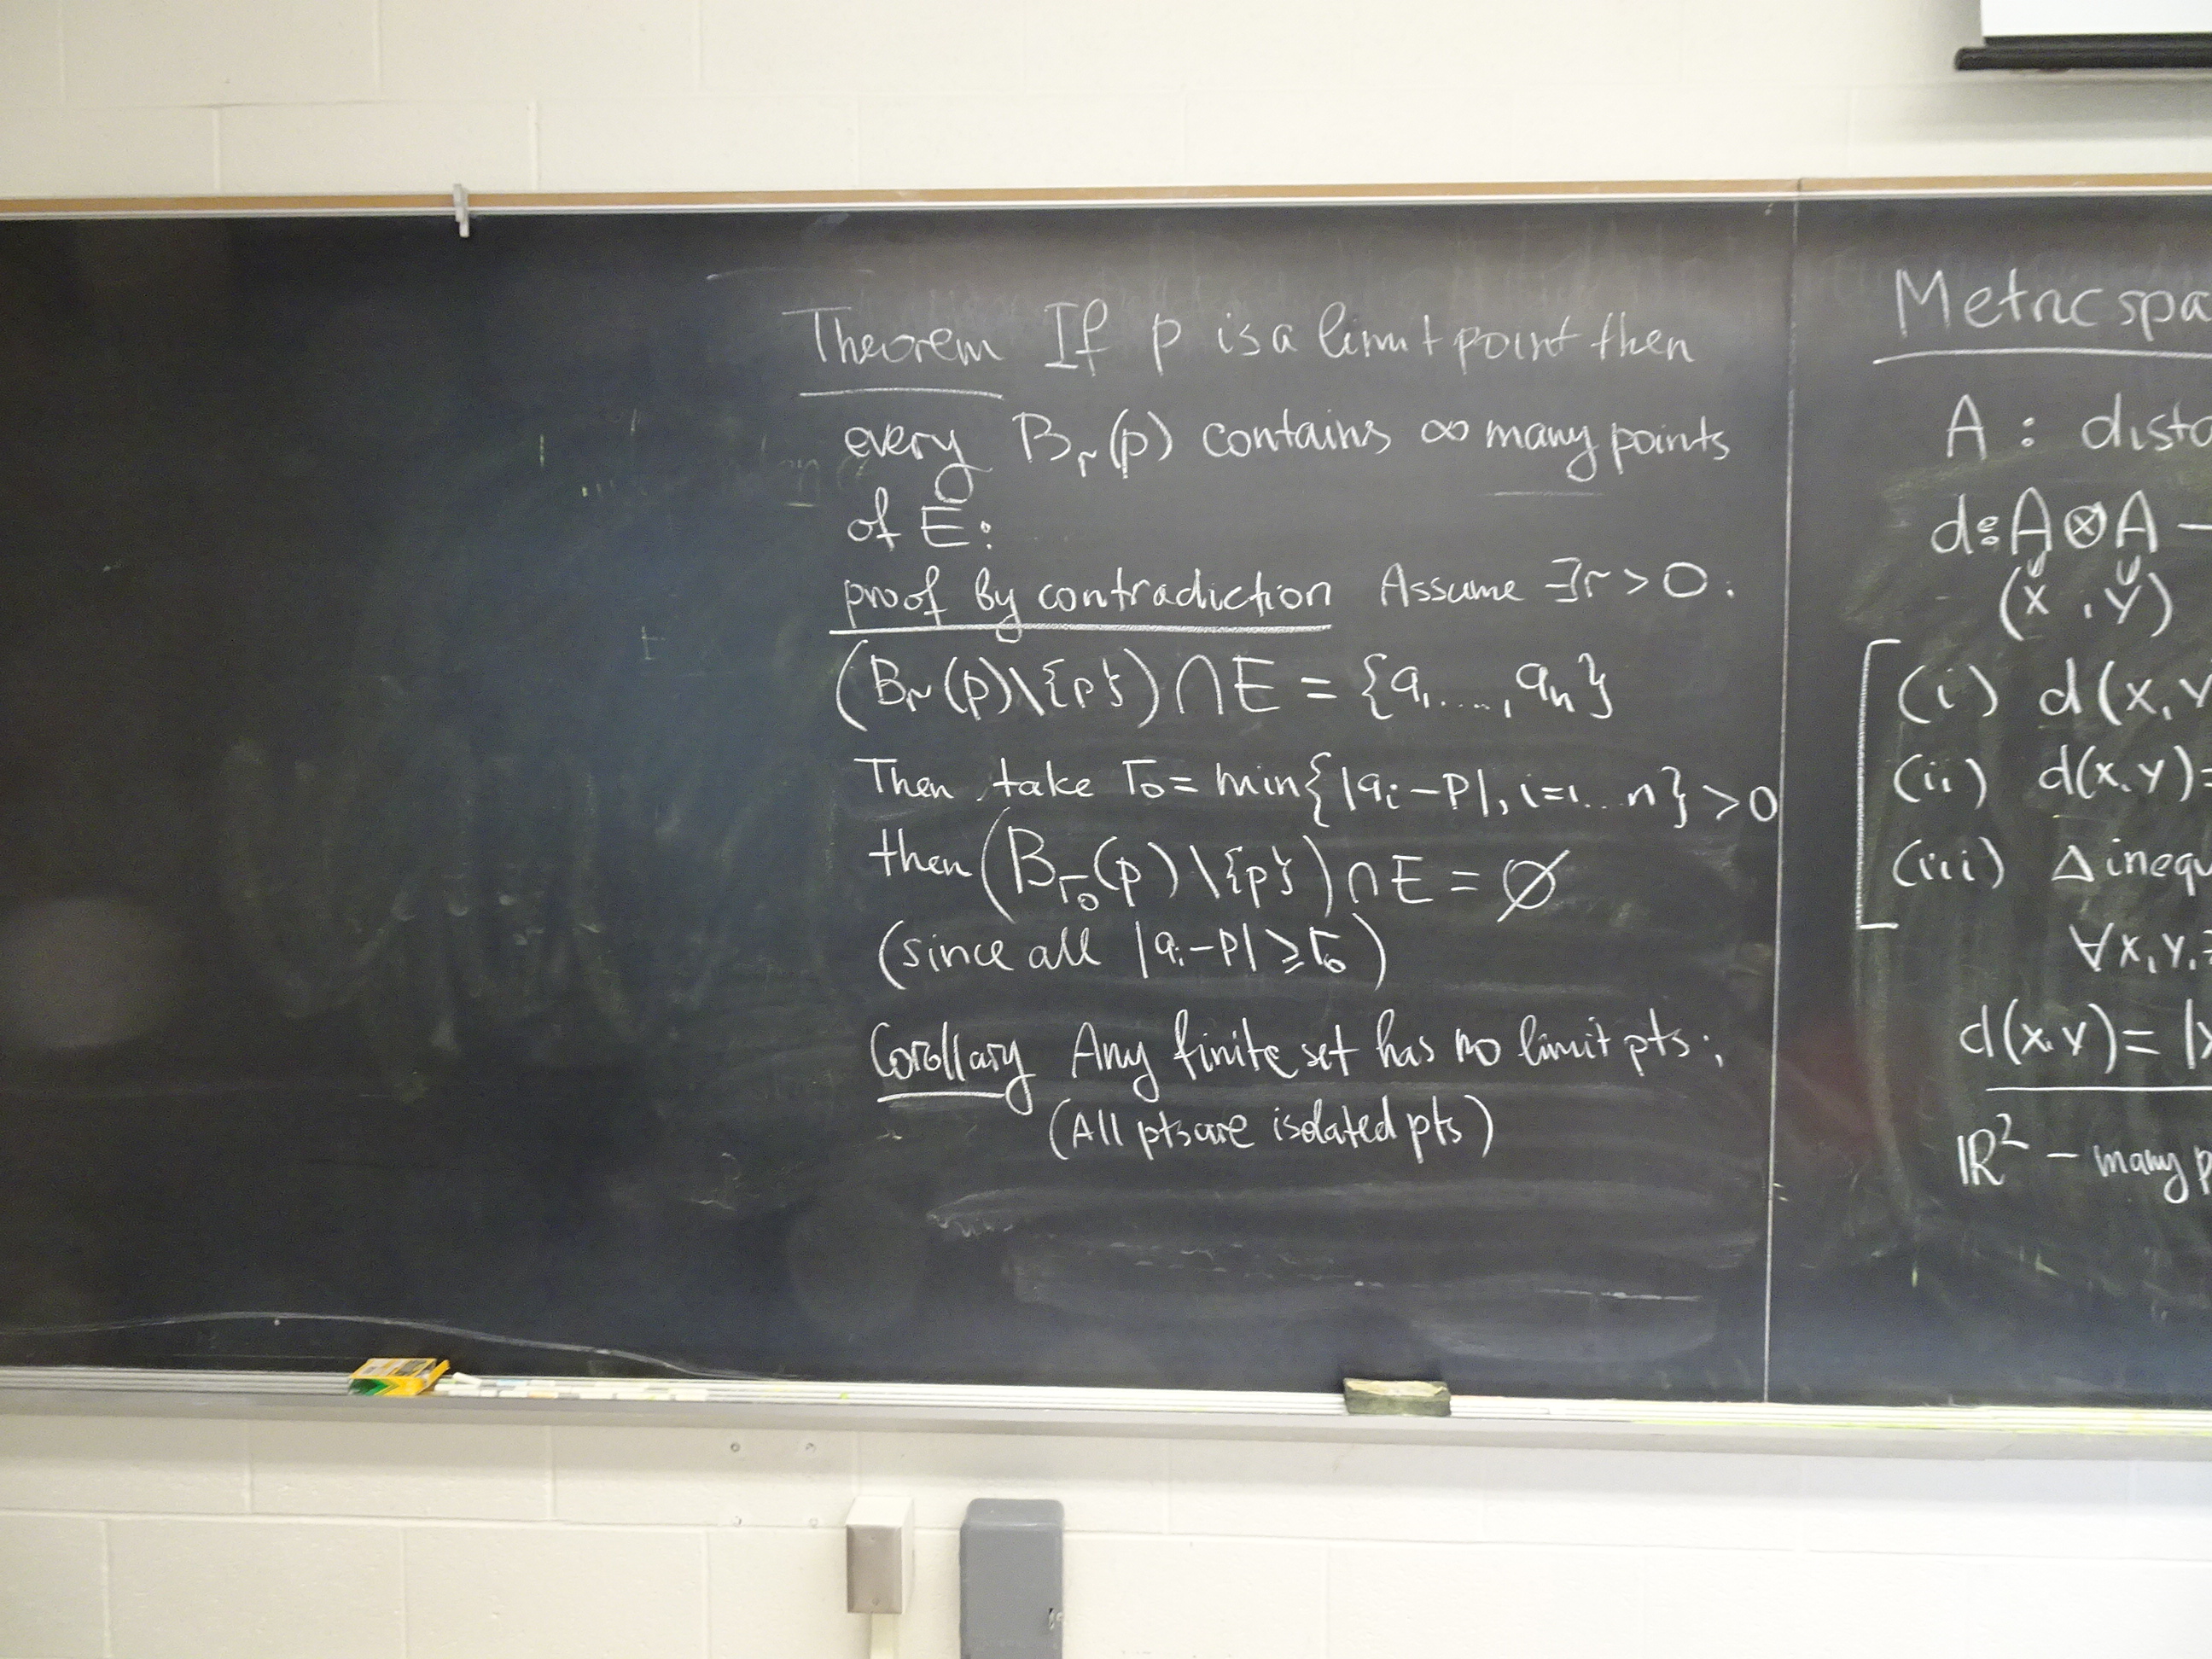 Theorem If p is a limit point then
every Br(p) contains ∞ many points
of E:
proof by contradiction Assume ∃r > 0:
(Br(p)\{p}) ∩ E = {a1, ..., an}
Then, take r0 = min{|ai - p|, i=1...n} > 0
then (Br0(p)\{p}) ∩ E = ∅
(since all |ai - p| ≥ r0)
Corollary Any finite set has no limit pts;
(All pts are isolated pts)
Metric spa
A : dista
d: A ⊗ A -
(x, y)
(i) d(x, y
(ii) d(x, y) =
(iii) Δ inequ
∀x, y, z
d(x, y) = |x
ℝ² - many p